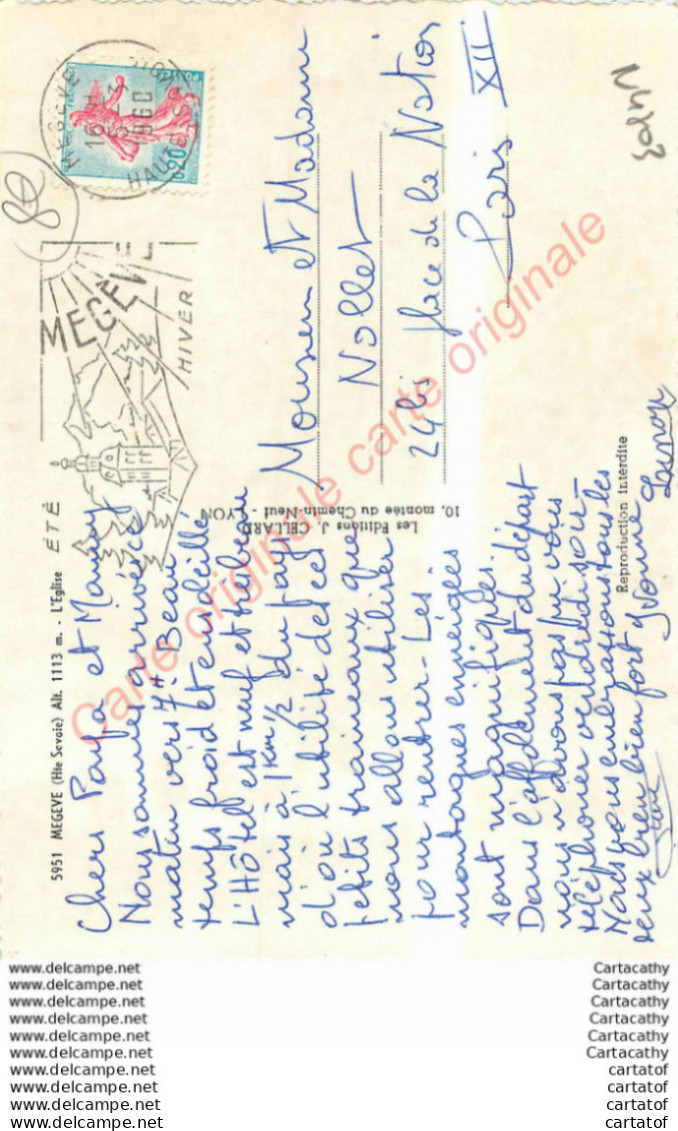 5951 MEGEVE (Hte Savoie) Alt. 1113 m. - L'Eglise
Chers Papa et Maman
Nous sommes arrivés ce
matin vers 7H. Beau
temps froid et ensoleillé,
L'Hôtel est neuf et très bien
mais à 1 Km 1/2 du pays
d'où l'utilité de ces
petits traineaux que
nous allons utiliser
pour rentrer - Les
montagnes enneigées
sont magnifiques.
Dans l'affolement du départ
nous n'avons pas pu vous
téléphoner vendredi soir -
Nous vous embrassons tous les
deux bien bien fort Yvonne
Les Editions J. CELLARD
10, montée du Chemin-Neuf - LYON
Reproduction interdite
ÉTÉ
MEGÈVE
HIVER
MEGÈVE
16 H
1960
HAUTE
0,20
80
Monsieur et Madame
Nollet
24bis place de la Nation
Paris XII
Carte originale carte originale
www.delcampe.net
www.delcampe.net
www.delcampe.net
www.delcampe.net
www.delcampe.net
www.delcampe.net
www.delcampe.net
www.delcampe.net
www.delcampe.net
www.delcampe.net
Cartacathy
Cartacathy
Cartacathy
Cartacathy
Cartacathy
Cartacathy
cartatof
cartatof
cartatof
cartatof